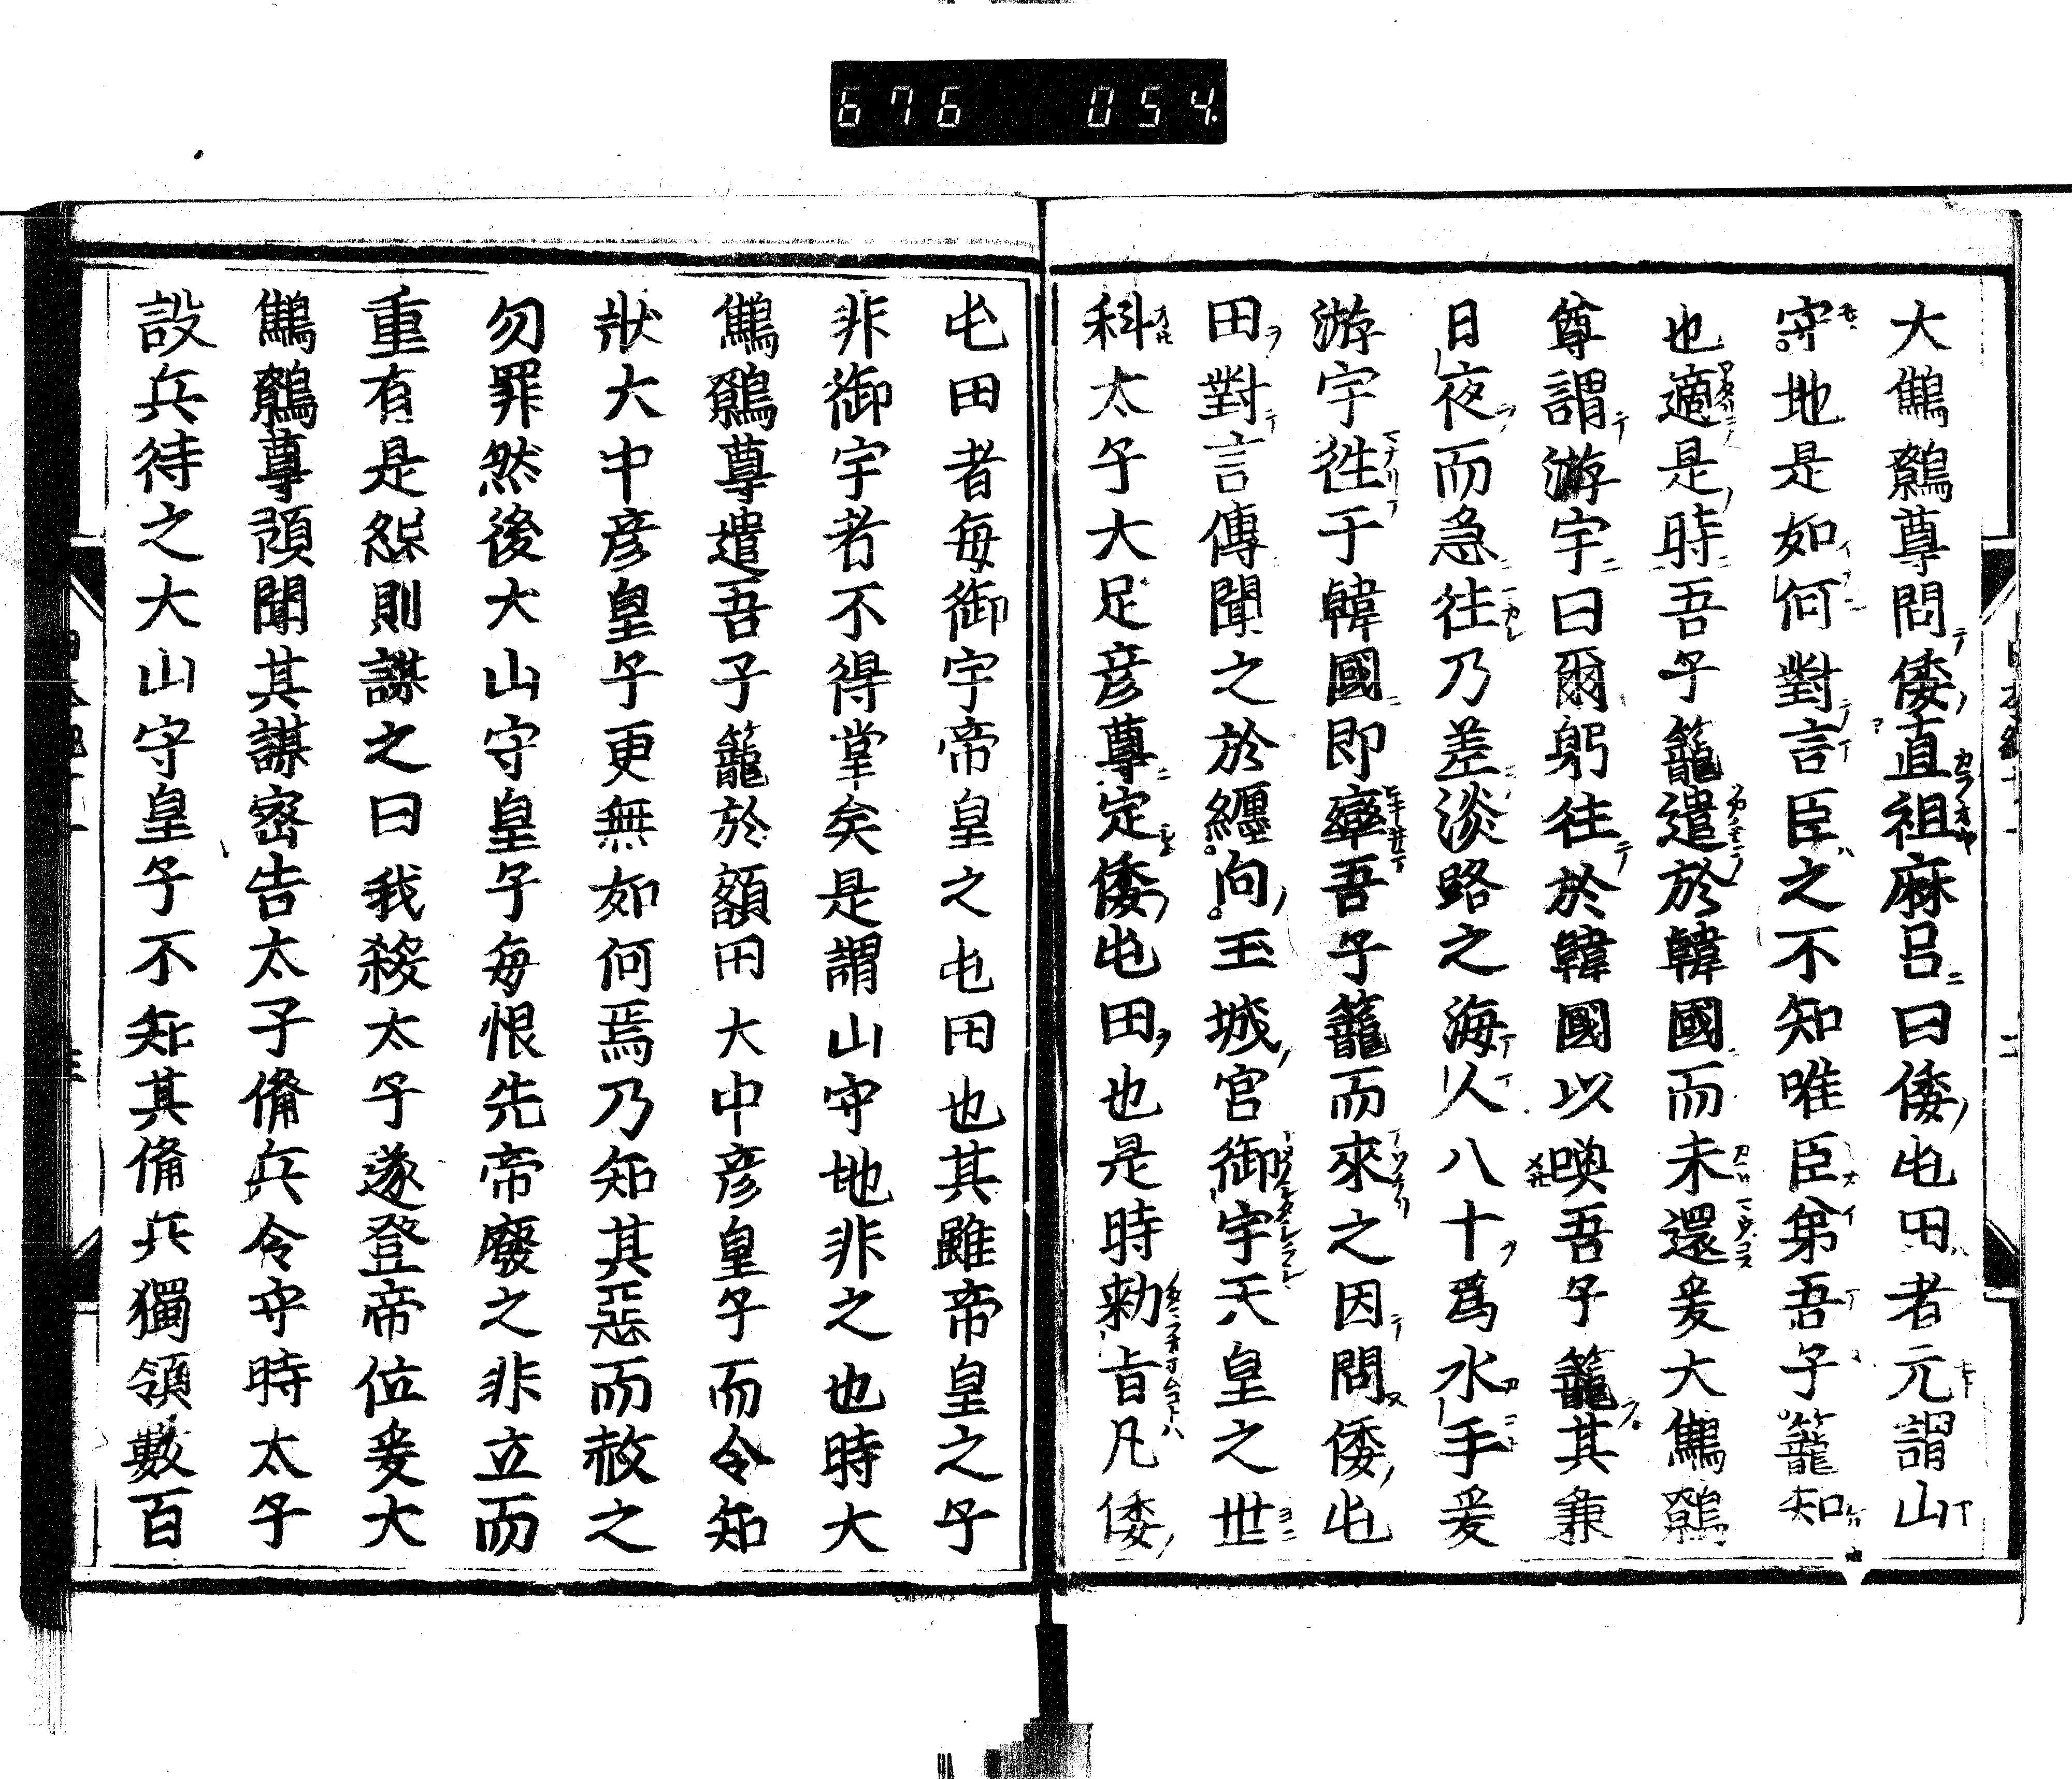 676 054
大鷦鷯尊問倭直祖麻呂曰倭屯田者元謂山
守地是如何對言臣之不知唯臣弟吾子籠知
也適是時吾子籠遣於韓國而未還爰大鷦鷯
尊謂游宇曰爾躬往於韓國以喚吾子籠其兼
日夜而急往乃差淡路之海人八十爲水手爰
游宇往于韓國即率吾子籠而來之因問倭屯
田對言傳聞之於纏向玉城宮御宇天皇之世
科太子大足彦尊定倭屯田也是時勅旨凡倭
屯田者每御宇帝皇之屯田也其雖帝皇之子
非御宇者不得掌矣是謂山守地非之也時大
鷦鷯尊遣吾子籠於額田大中彦皇子而令知
狀大中彦皇子更無如何焉乃知其惡而赦之
勿罪然後大山守皇子每恨先帝廢之非立而
重有是怨則謀之曰我殺太子遂登帝位爰大
鷦鷯尊預聞其謀密告太子備兵令守時太子
設兵待之大山守皇子不知其備兵獨領數百